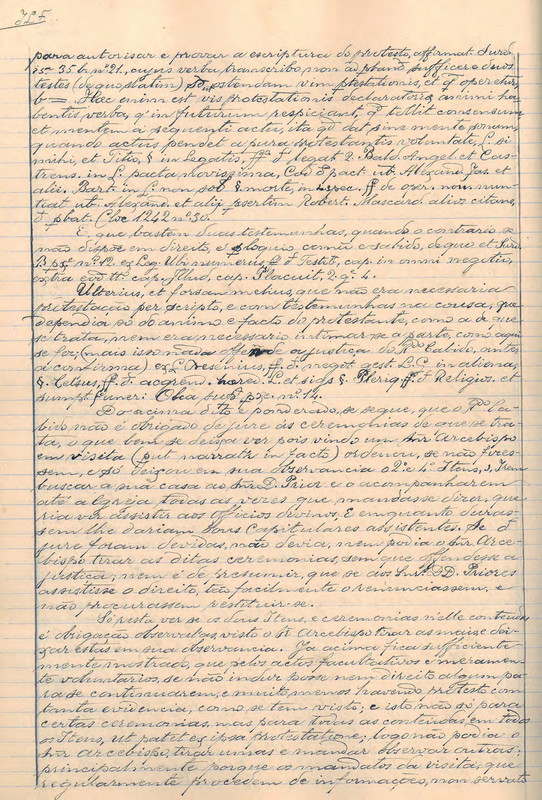 para autorisar e provar a escriptura do protesto, affirmat Surd.
35. nº 21, cujus verba transcribo non ad plenũ sufficere duos
testes (de quo statim) Sed ostendam vim ptestationis, et q̃ operetur,
= Hac enim est vis protestationis declaratoriæ animi ha-
bentis verba, q̃ in futurum respiciant, q̃ tollit consensum
et mentem a sequenti actu, ita qd dat sine mente bonum,
quando actus pendet a pura protestantis voluntate, l. si
mihi, et Titio, § in Legatis. ff d legat 2. Bald. Angel. et Cas-
trens. in L. pacta novissima, Cod d pact. ubi Alexand Jas. et
alii. Bart. in L. non sol. § morte, ff d oper. novi nun-
tiat ubi Alexand. et alij psertim Robert. Mascard alios citans,
d pbat. Clse 1242 nº 30.
E que bastem duas testemunhas, quando o contrario se
não dispõe em direito, é bloquio comũ e sabido, de quo et Surd.
nº 12. ex Leg. Ubi numerus, ff d Testib, cap. in omni negotio,
extra eod tt cap. Illud, cap. Placuit, 2 q. 4.
Ulterius, et forsan melius, que não era necessaria
protestação per scripto, e com testemunhas na cousa, que
dependia só do animo e facto do protestante, como a de que
se trata, nem era necessario intimar-se a parte, como aqui
se fez; (mais isso não offende a justiça do Rdo Cabido, antes
a confirma) ex L. Nesennius, ff. d. negot. gest. L. C. in actiona,
§. Celsus, ff. d. acqrend. hered. L. et si quis §. Plerig. ff. d Religios. et
sumpt. funer. Olea nº 14.
Do acima dito e ponderado, se segue, que o Rdo Ca-
bido não é obrigado de jure ás ceremonias de que se tra-
ta, o que bem se deixa ver pois vindo um Snr Arcebispo
em visita (put narratr in facto) ordenou, se não fizes-
sem, e só deixou em sua observancia o 2º e 4º Itens, s, irem
buscar a sua casa ao Snr D. Prior e o acompanharem
até a Egreja todas as vezes que mandasse dizer, que
ria vir assistir aos Officios divinos. E emquanto duras-
sem lhe dariam dous Capitulares assistentes. Se de
jure foram devidas, não devia, nem podia o Snr Arce-
bispo tirar as ditas ceremonias, sem que offendesse a
justiça, nem é de presumir, que se aos Snrs D.D. Priores
assistisse o direito, tão facilmente o renunciassem, e
não procurassem restituir-se.
Só resta ver se os dous Itens, e ceremonias n'elle contendas
é obrigação observal-as, visto o Sr Arcebispo tirar as mais e dei-
xar estas em sua observancia. Ja acima fica sufficiente
mente mostrado, que pelos actos facultativos e meramen-
te voluntarios, se não induz posse nem direito algum pa-
ra se continuarem, e muito menos havendo protesto com
tanta evidencia, como se tem visto; e isto não só para
certas ceremonias, mas para todas as contendas em todos
os Itens, ut patet ex ipsa protestatione; logo não podia o
Snr Arcebispo, tirar umas e mandar observar outras:
principalmente porque os mandatos da visita, que
regularmente procedem de informações, non servato